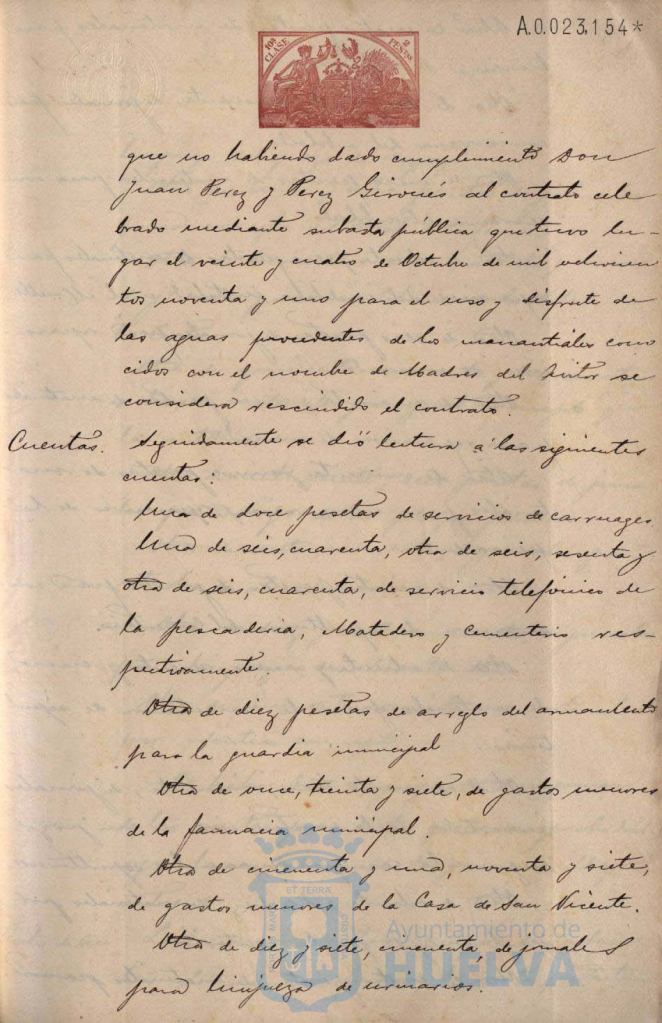 A.0.023,154*
10ª CLASE 2 PESETAS
que no habiendo dado cumplimiento Don
Juan Perez y Perez Gironés al contrato cele
brado mediante subasta pública que tuvo lu-
gar el veinte y cuatro de Octubre de mil ochocien
tos noventa y uno para el uso y disfrute de
las aguas procedentes de los manantiales cono
cidos con el nombre de Madres del se
considera rescindido el contrato.
Cuentas. Seguidamente se dió lectura á las siguientes
cuentas:
Una de doce pesetas de servicios de carruages
Una de seis, cuarenta, otra de seis, sesenta y
otra de seis, cuarenta, de servicio telefónico de
la pescaderia, Matadero y Cementerio res-
pectivamente.
Otra de diez pesetas de arreglo del armamento
para la guardia municipal
Otra de once, treinta y siete, de gastos menores
de la farmacia municipal.
Otra de cincuenta y una, noventa y siete,
de gastos menores de la Casa de San Vicente.
Otra de diez y siete, cincuenta, de jornales
para limpieza de urinarios.
Ayuntamiento de
HUELVA